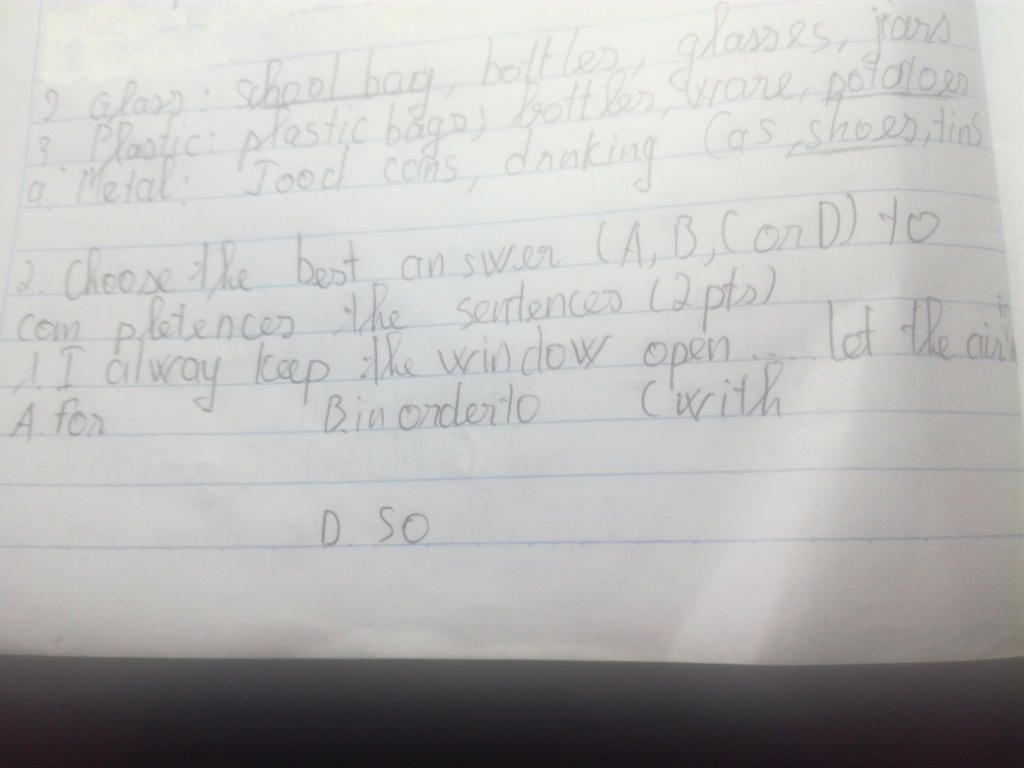 2 Glass: school bag, bottles, glasses, jars
3. Plastic: plastic bags, bottles, ware, potatoes
Metal: Food cans, drinking Cas, shoes, tins
2. Choose the best answer (A, B, C or D) to
com pletences the sentences (2pts)
1. I alway keep the window open ... let the air in
A. for B. in order to C with
D. SO